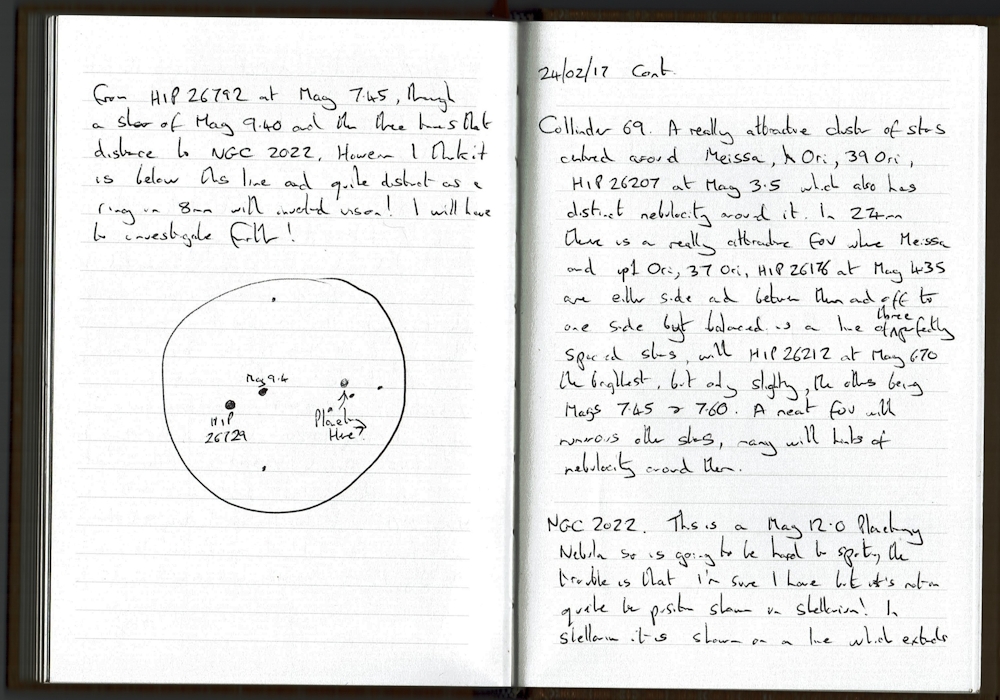 from HIP 26792 at Mag 7.45, through
a star of Mag 9.40 and then three times that
distance to NGC 2022. However I think it
is below this line and quite distinct as a
ring in 8mm with averted vision! I will have
to investigate further!
Mag 9.4
HIP
26729
Planetary
Here?
24/02/17 Cont.
Collinder 69. A really attractive cluster of stars
centred around Meissa, λ Ori, 39 Ori,
HIP 26207 at Mag 3.5 which also has
distinct nebulocity around it. In 22mm
there is a really attractive FOV where Meissa
and φ1 Ori, 37 Ori, HIP 26176 at Mag 4.35
are either side and between them and off to
one side but balanced is a line of three perfectly
spaced stars, with HIP 26212 at Mag 6.70
the brightest, but only slightly, the others being
Mags 7.45 & 7.60. A neat FOV with
numerous other stars, many with hints of
nebulocity around them.
NGC 2022. This is a Mag 12.0 Planetary
Nebula so is going to be hard to spot, the
trouble is that I'm sure I have but it's not in
quite the position shown in Stellarium! In
Stellarium it is shown on a line which extends